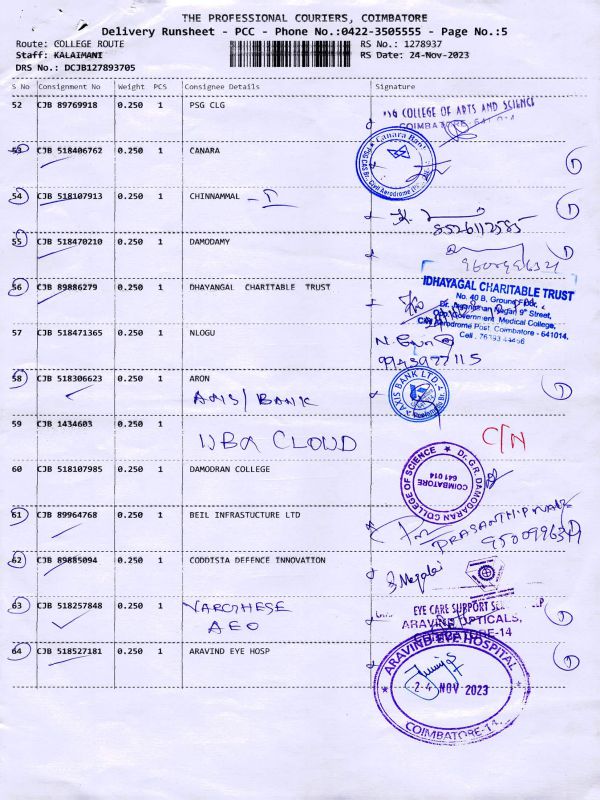 THE PROFESSIONAL COURIERS, COIMBATORE
Delivery Runsheet - PCC - Phone No.:0422-3505555 - Page No.:5
Route: COLLEGE ROUTE
RS No.: 1278937
Staff: KALAIMANI
RS Date: 24-Nov-2023
DRS No.: DCJB127893705
S No Consignment No Weight PCS Consignee Details Signature
52 CJB 89769918 0.250 1 PSG CLG
COLLEGE OF ARTS AND SCIENCE
COIMBATORE-641 014
53 CJB 518406762 0.250 1 CANARA
Canara Bank
54 CJB 518107913 0.250 1 CHINNAMMAL
8526112585
55 CJB 518470210 0.250 1 DAMODAMY
56 CJB 89886279 0.250 1 DHAYANGAL CHARITABLE TRUST
IDHAYAGAL CHARITABLE TRUST
No. 40 B, Ground Floor,
Nagan 9th Street,
Government Medical College,
Aerodrome Post, Coimbatore - 641014.
57 CJB 518471365 0.250 1 NLOGU
9943977115
58 CJB 518306623 0.250 1 ARON
AXIS BANK LTD.
AXIS/BANK
59 CJB 1434603 0.250 1
WBA CLOUD
C/N
60 CJB 518107985 0.250 1 DAMODRAN COLLEGE
Dr. G.R. DAMODARAN COLLEGE OF SCIENCE
COIMBATORE
641 014
61 CJB 89964768 0.250 1 BEIL INFRASTUCTURE LTD
62 CJB 89885094 0.250 1 CODDISIA DEFENCE INNOVATION
63 CJB 518257848 0.250 1
VARGHESE
AEO
EYE CARE SUPPORT
ARAVIND OPTICALS,
COIMBATORE-14
64 CJB 518527181 0.250 1 ARAVIND EYE HOSP
ARAVIND EYE HOSPITAL
24 NOV 2023
COIMBATORE-14.